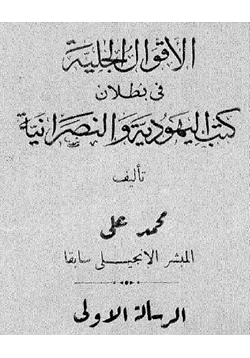 الأقوال الجلية
فى بطلان
كتب اليهودية والنصرانية
تأليف
محمد على
المبشر الإنجيلى سابقا
الرسالة الاولى